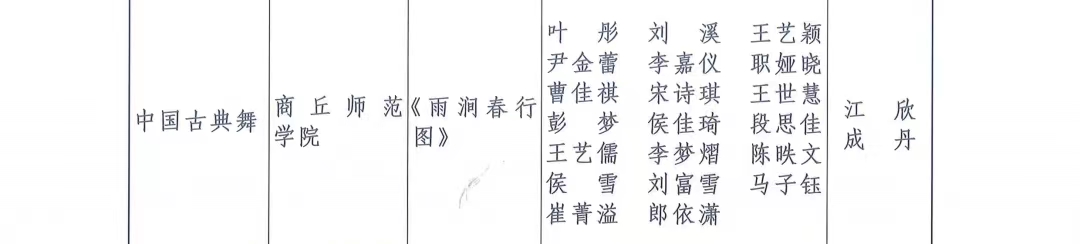 中国古典舞
商丘师范
学院
《雨涧春行
图》
叶彤 刘溪 王艺颖
尹金蕾 李嘉仪 职娅晓
曹佳祺 宋诗琪 王世慧
彭梦 侯佳琦 段思佳
王艺儒 李梦熠 陈昳文
侯雪 刘富雪 马子钰
崔菁溢 郎依潇
江欣
成丹